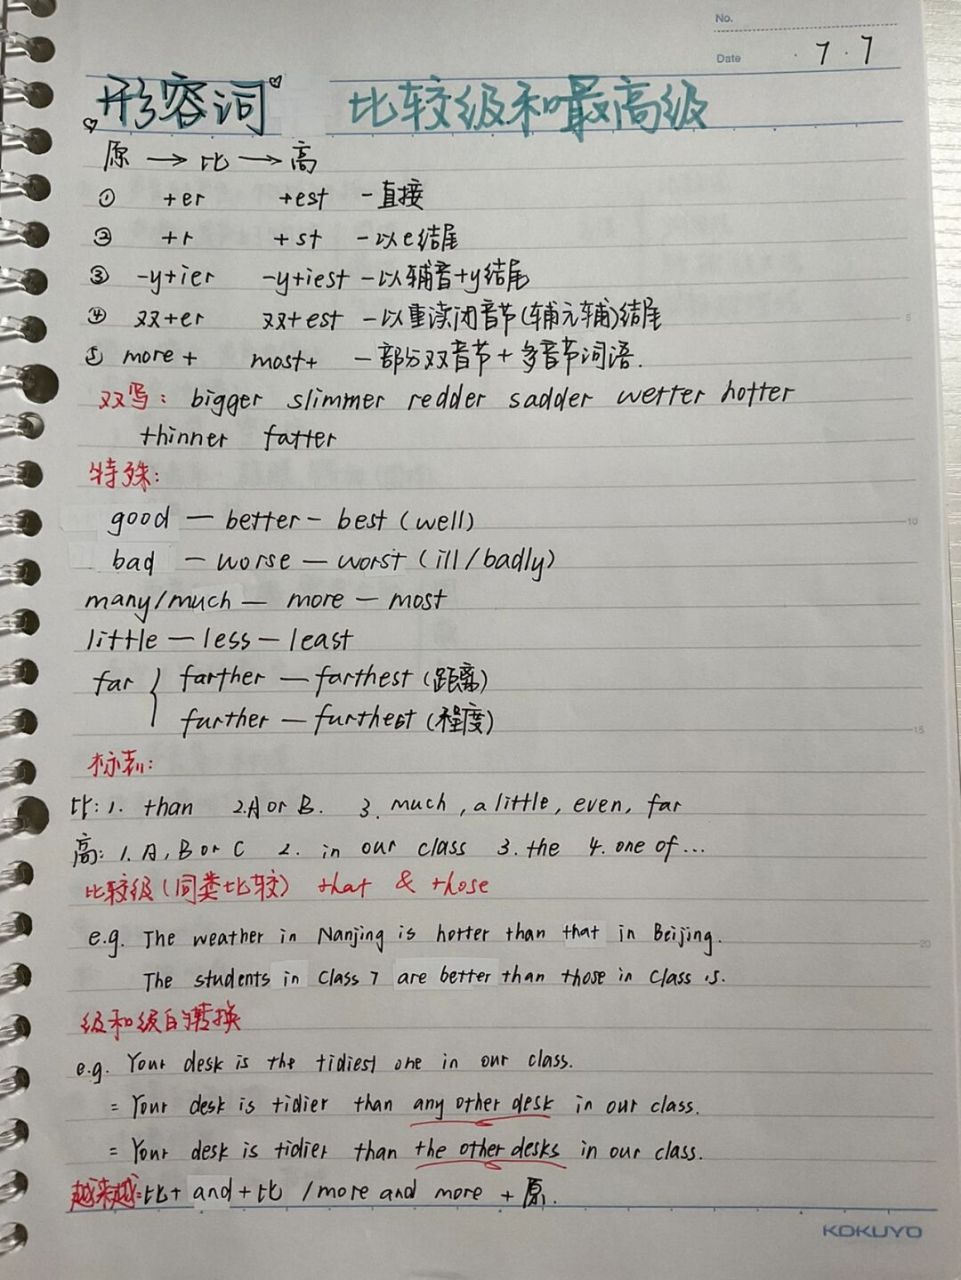 No.
Date 7.7
形容词 比较级和最高级
原 → 比 → 高
① +er +est -直接
② +r +st -以e结尾
③ -y+ier -y+iest -以辅音+y结尾
④ 双+er 双+est -以重读闭音节(辅元辅)结尾
⑤ more+ most+ -部分双音节+多音节词语.
双写: bigger slimmer redder sadder wetter hotter
thinner fatter
特殊:
good — better — best (well)
bad — worse — worst (ill/badly)
many/much — more — most
little — less — least
far { farther — farthest (距离)
further — furthest (程度)
标志:
比: 1. than 2. A or B. 3. much, a little, even, far
高: 1. A, B or C 2. in our class 3. the 4. one of...
比较级(同类比较) that & those
e.g. The weather in Nanjing is hotter than that in Beijing.
The students in Class 7 are better than those in Class 15.
级和级的转换
e.g. Your desk is the tidiest one in our class.
= Your desk is tidier than any other desk in our class.
= Your desk is tidier than the other desks in our class.
越来越: 比+and+比 / more and more + 原.
KOKUYO
5
10
15
20